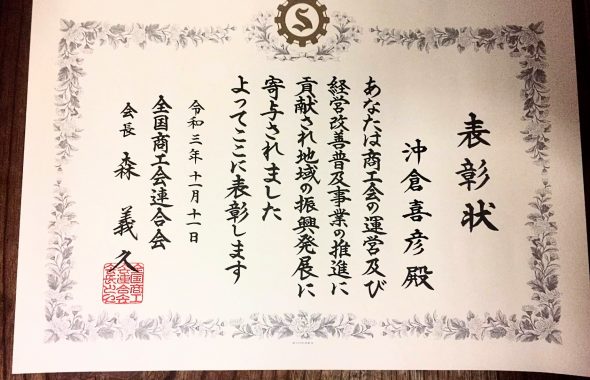 S
表彰状
沖倉喜彦 殿
あなたは商工会の運営及び
経営改善普及事業の推進に
貢献され地域の振興発展に
寄与されました
よってここに表彰します
令和三年十一月十一日
全国商工会連合会
会長 森 義久